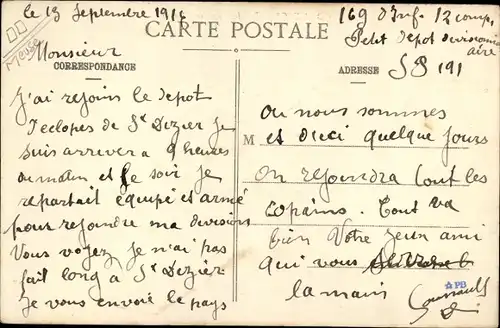 le 13 Septembre 1916
169 d'Inf. 12 comp.
CARTE POSTALE
Petit depot divisionnaire
Meuse
Monsieur
CORRESPONDANCE
ADRESSE
SP 191
J'ai rejoins le depot
d'eclopes de St Dizier je
suis arriver a 9 heures
du matin et le soir je
repartait équipé et armé
pour rejoindre ma division
Vous voyez je n'ai pas
fait long a St Dizier
Je vous envoie le pays
ou nous sommes
M
et dici quelque jours
on rejoindra tout les
copains. Tout va
bien Votre jeun ami
qui vous
la main
PB